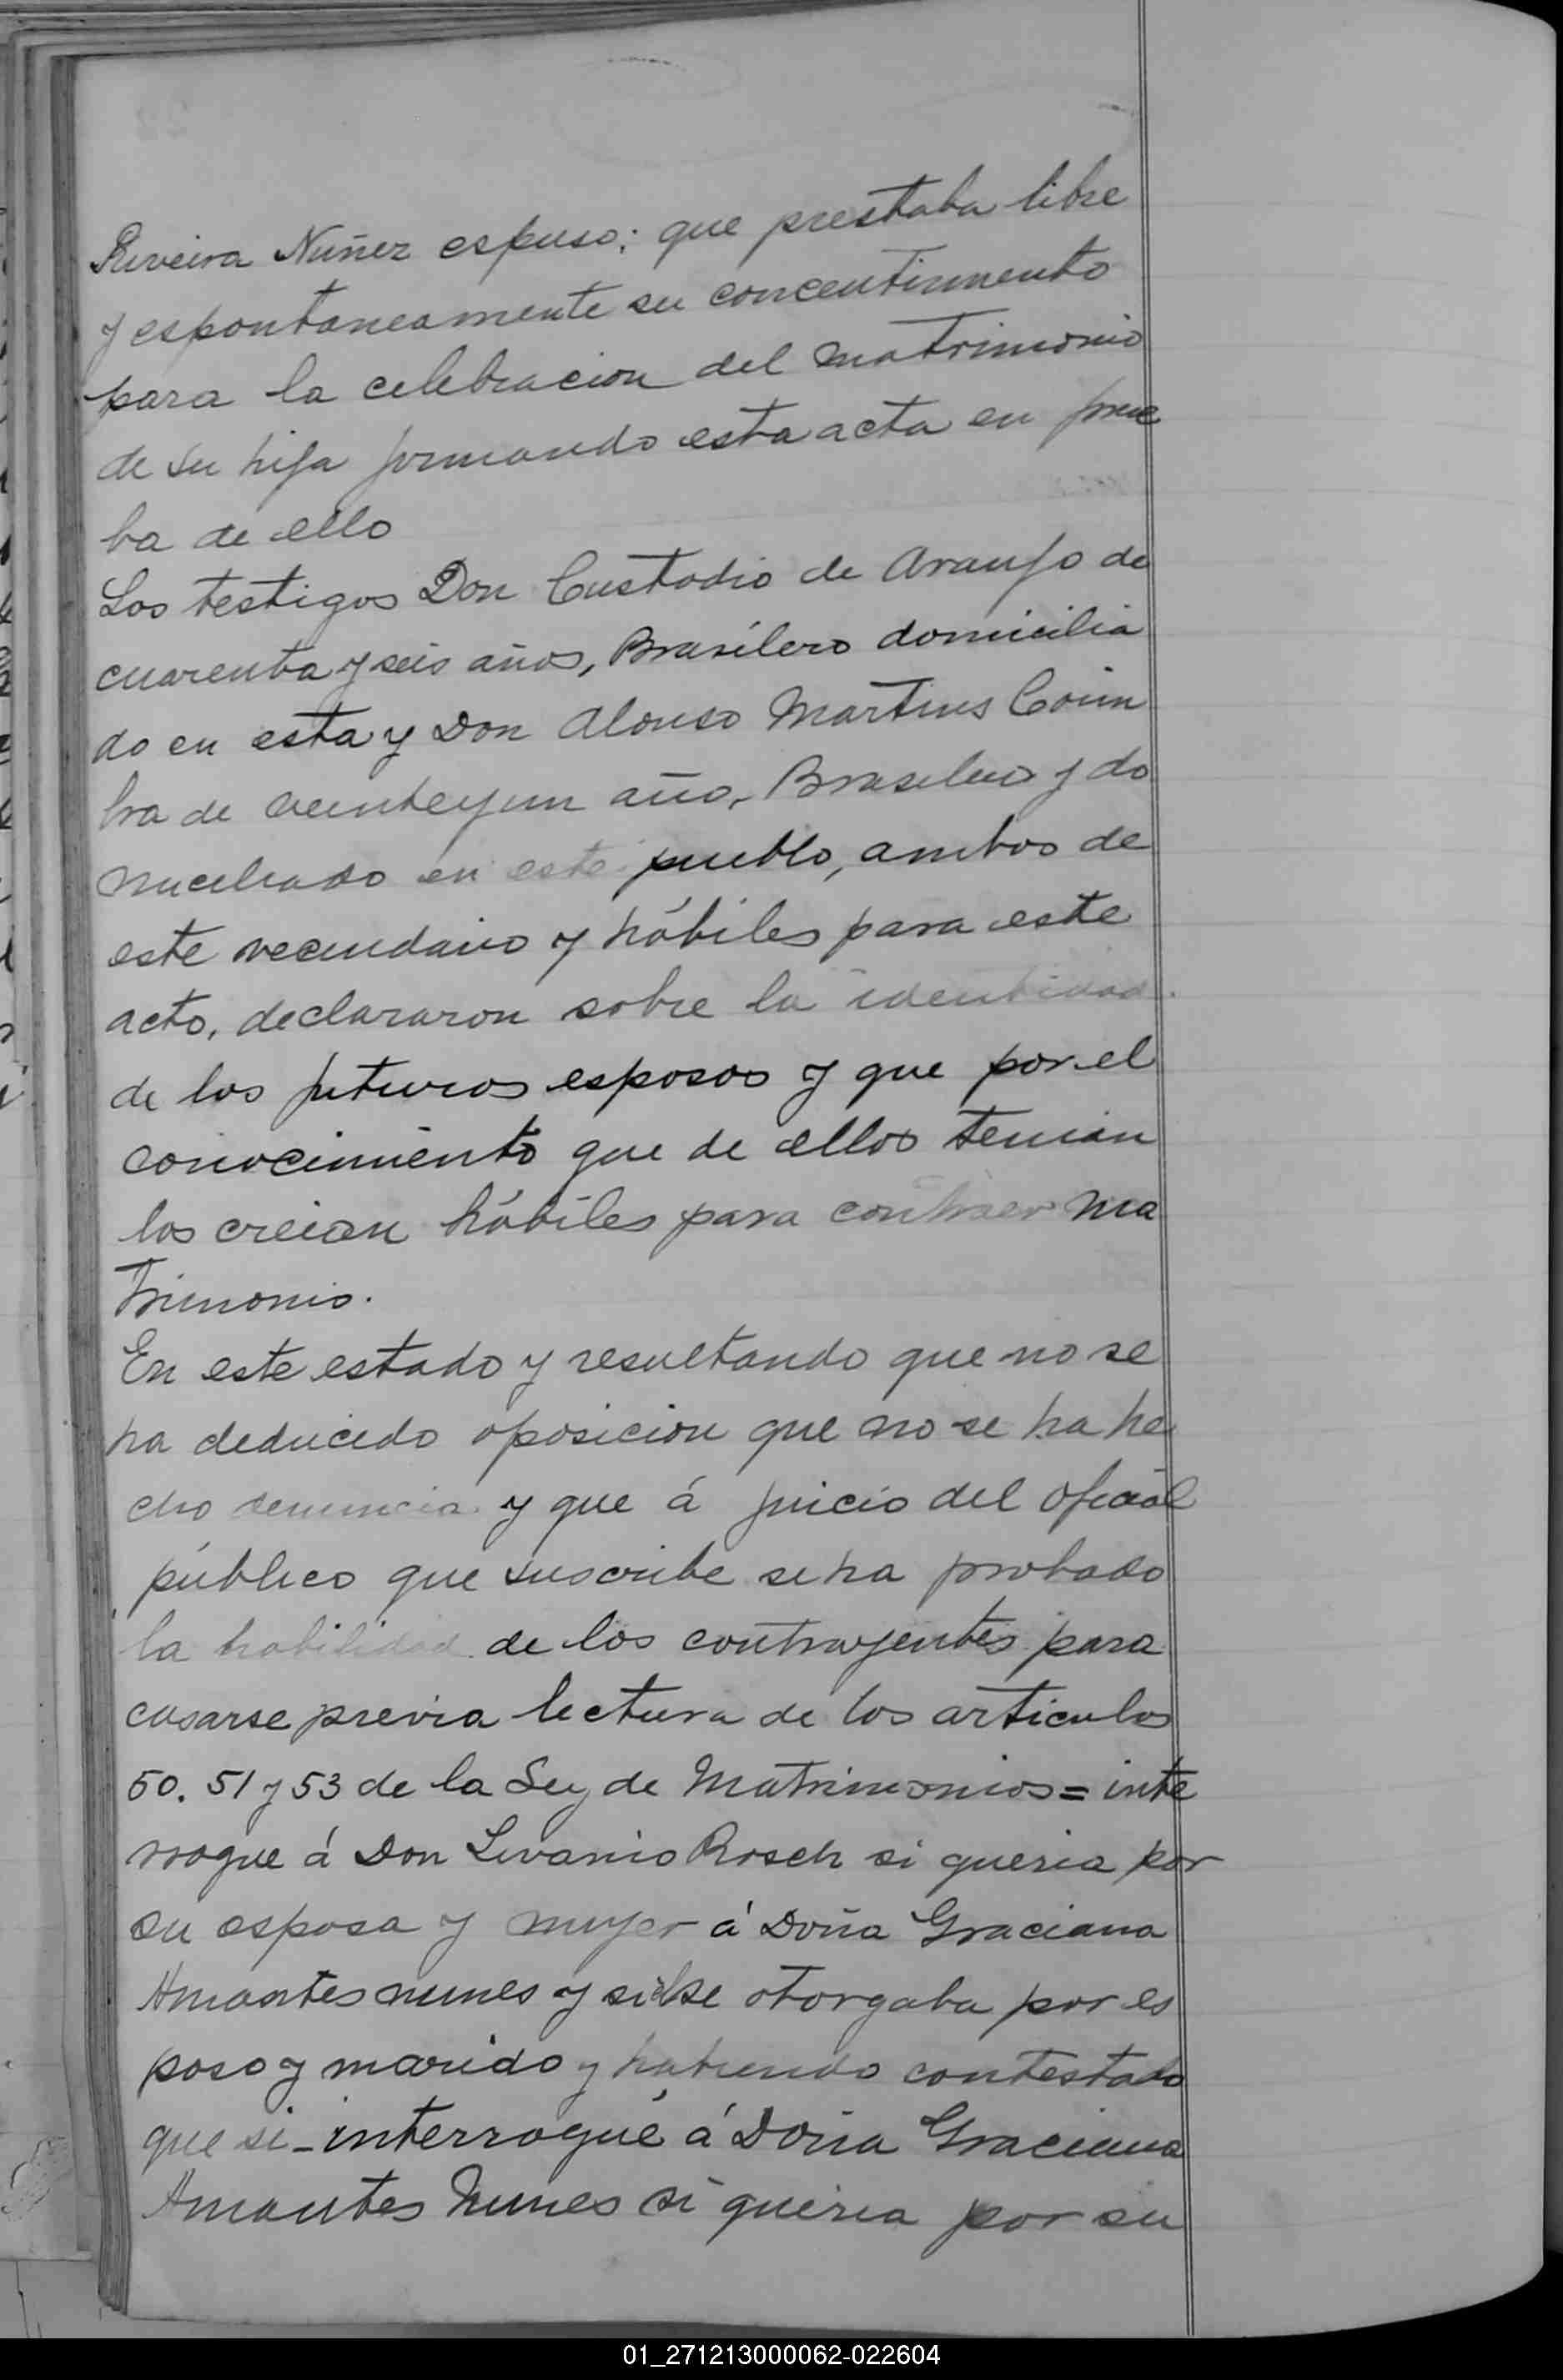 Riveira Nuñez espuso; que prestaba libre
y espontaneamente su concentimiento
para la celebracion del matrimonio
de su hija firmando esta acta en prue
ba de ello
Los testigos Don Custodio de Araujo de
cuarenta y seis años, Brasilero domicilia
do en esta y Don Alonso Martins Coim
bra de veinteyun año, Brasilero y do
miciliado en este pueblo, ambos de
este vecindario y hábiles para este
acto, declararon sobre la identidad
de los futuros esposos y que por el
conocimiento que de ellos tenian
los creian hábiles para contraer ma
trimonio.
En este estado y resultando que no se
ha deducido oposicion que no se ha he
cho denuncia y que á juicio del oficial
público que suscribe se ha probado
la habilidad de los contrayentes para
casarse previa lectura de los articulos
50. 51 y 53 de la Ley de Matrimonios = inte
rrogue á Don Rosch si queria por
su esposa y mujer á Doña Graciana
Amantes nunes y si se otorgaba por es
poso y marido y habiendo contestado
que si - interrogué á Doña Graciana
Amantes Nunes si queria por su
01_271213000062-022604